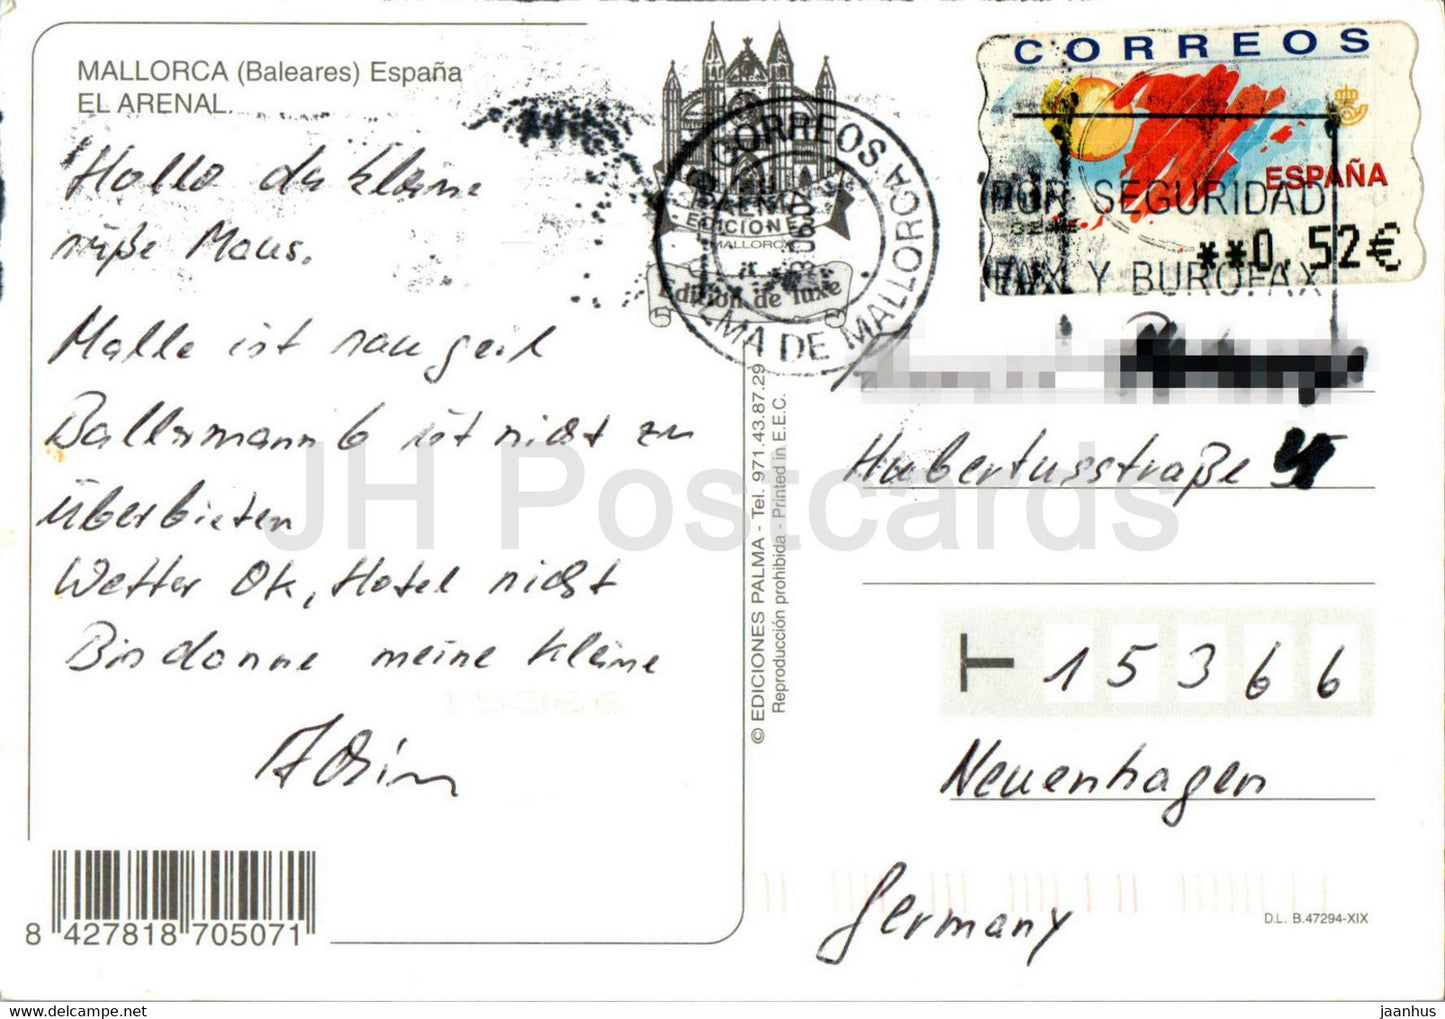 MALLORCA (Baleares) España
EL ARENAL.
Hallo du kleine
süße Maus.
Malle ist sau geil
Ballermann 6 ist nicht zu
überbieten
Wetter Ok, Hotel nicht
Bis danne meine kleine
8 427818 705071
© EDICIONES PALMA - Tel. 971.43.87.29
Reproducción prohibida - Printed in E.E.C.
EDICIONES
MALLORCA
Edition de luxe
CORREOS
PALMA DE MALLORCA
CORREOS
ESPAÑA
**0,52€
POR SEGURIDAD
FAX Y BUROFAX
Hubertusstraße
T 15366
Neuenhagen
Germany
D.L. B.47294-XIX
JH Postcards
jaanhus